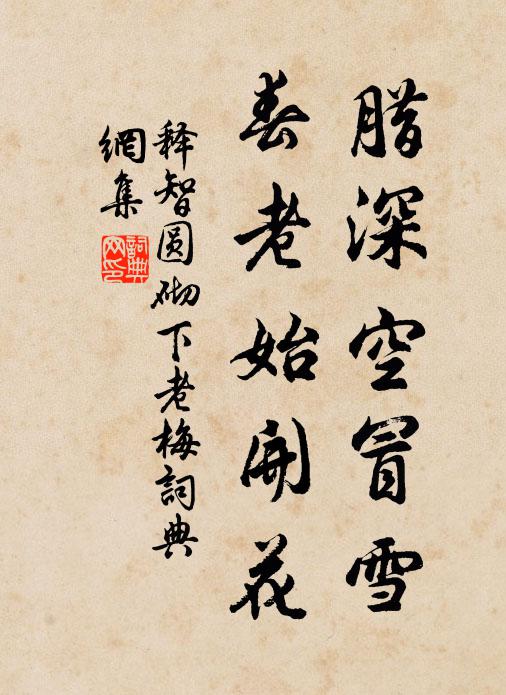 腊深空冒雪
春老始開花
释智圆砌下老梅詞典
網集
詞典
网印